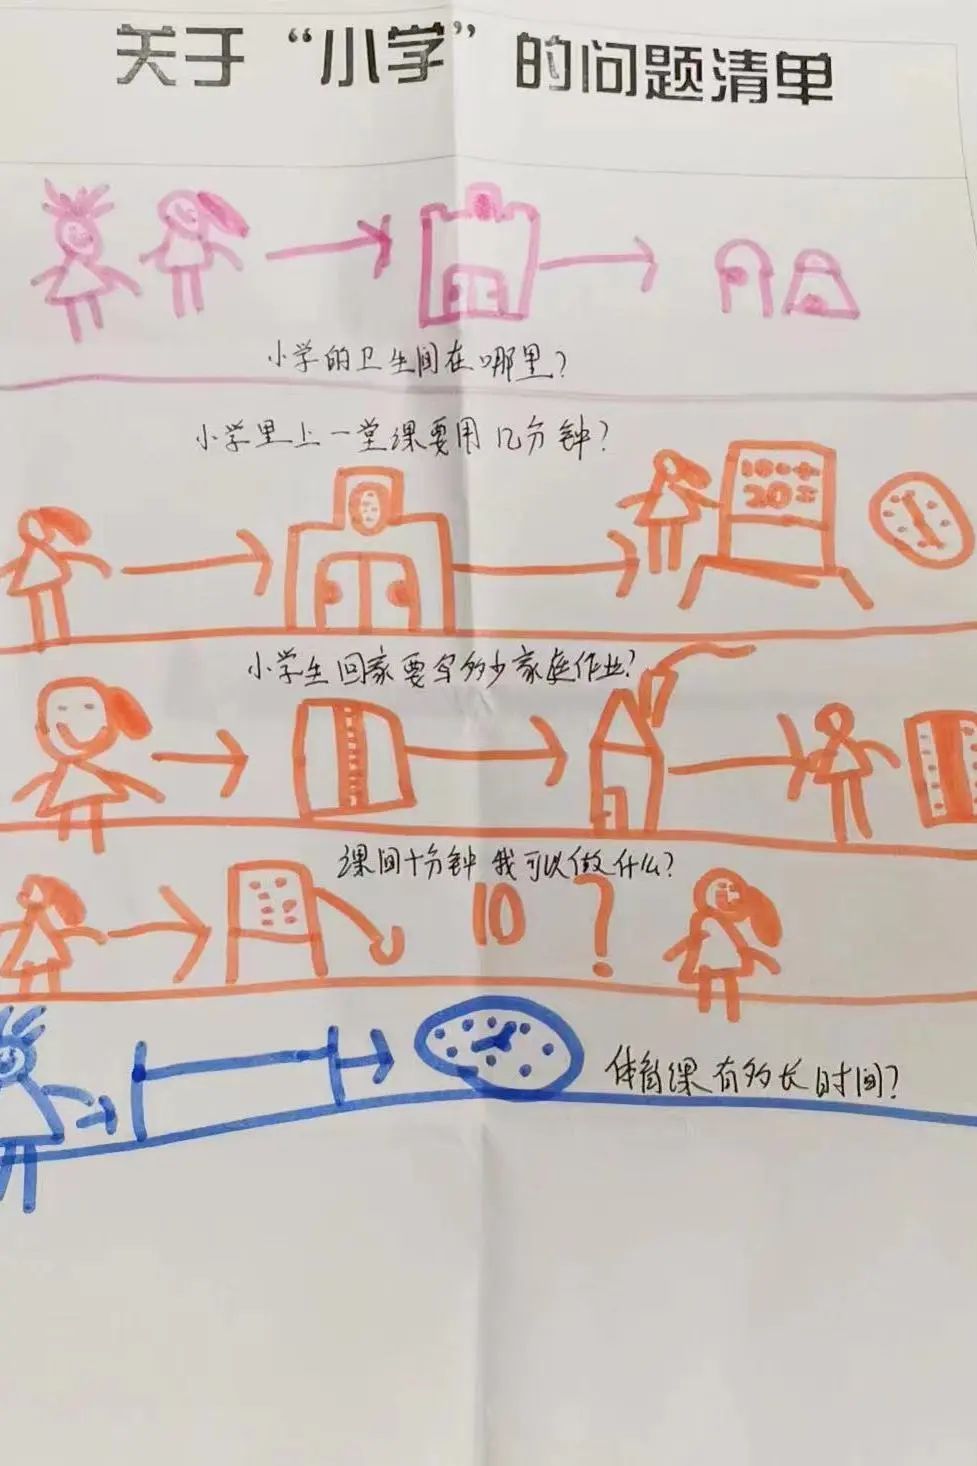 关于“小学”的问题清单
小学的卫生间在哪里?
小学里上一堂课要用几分钟?
100-+
20=
小学生回家要写多少家庭作业?
课间十分钟 我可以做什么?
10 ?
体育课有多长时间?